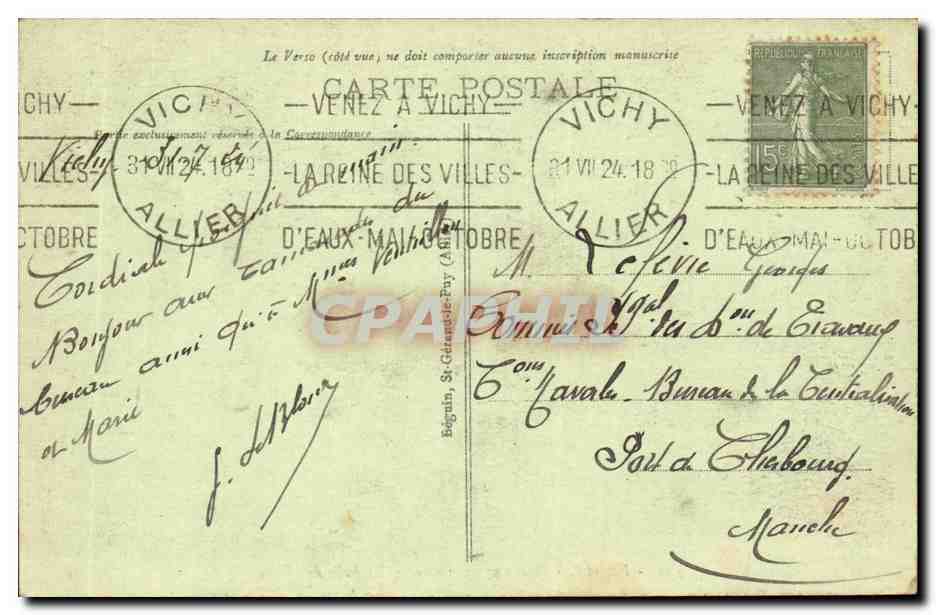 Le Verso (côté vue) ne doit comporter aucune inscription manuscrite
CARTE POSTALE
Partie exclusivement réservée à la Correspondance
ICHY
VILLES
CTOBRE
VICHY
31 VII 24. 18
ALLIER
VENEZ A VICHY
LA REINE DES VILLES
D'EAUX-MAI/OCTOBRE
VICHY
31 VII 24. 18
ALLIER
VENEZ A VICHY
LA REINE DES VILLES
D'EAUX-MAI-OCTOB
REPUBLIQUE FRANÇAISE
15c
Vichy 31 7 24
Cordiale poignée de main.
Bonjour aux camarades du
bureau ainsi qu'à Mmes
et Marie
J.
Béguin, St-Gérand-le-Puy
M. Lefèvre Georges
Commis des de Travaux
Navales Bureau de la Centralisation
Port de Cherbourg
Manche
CPAPHIL